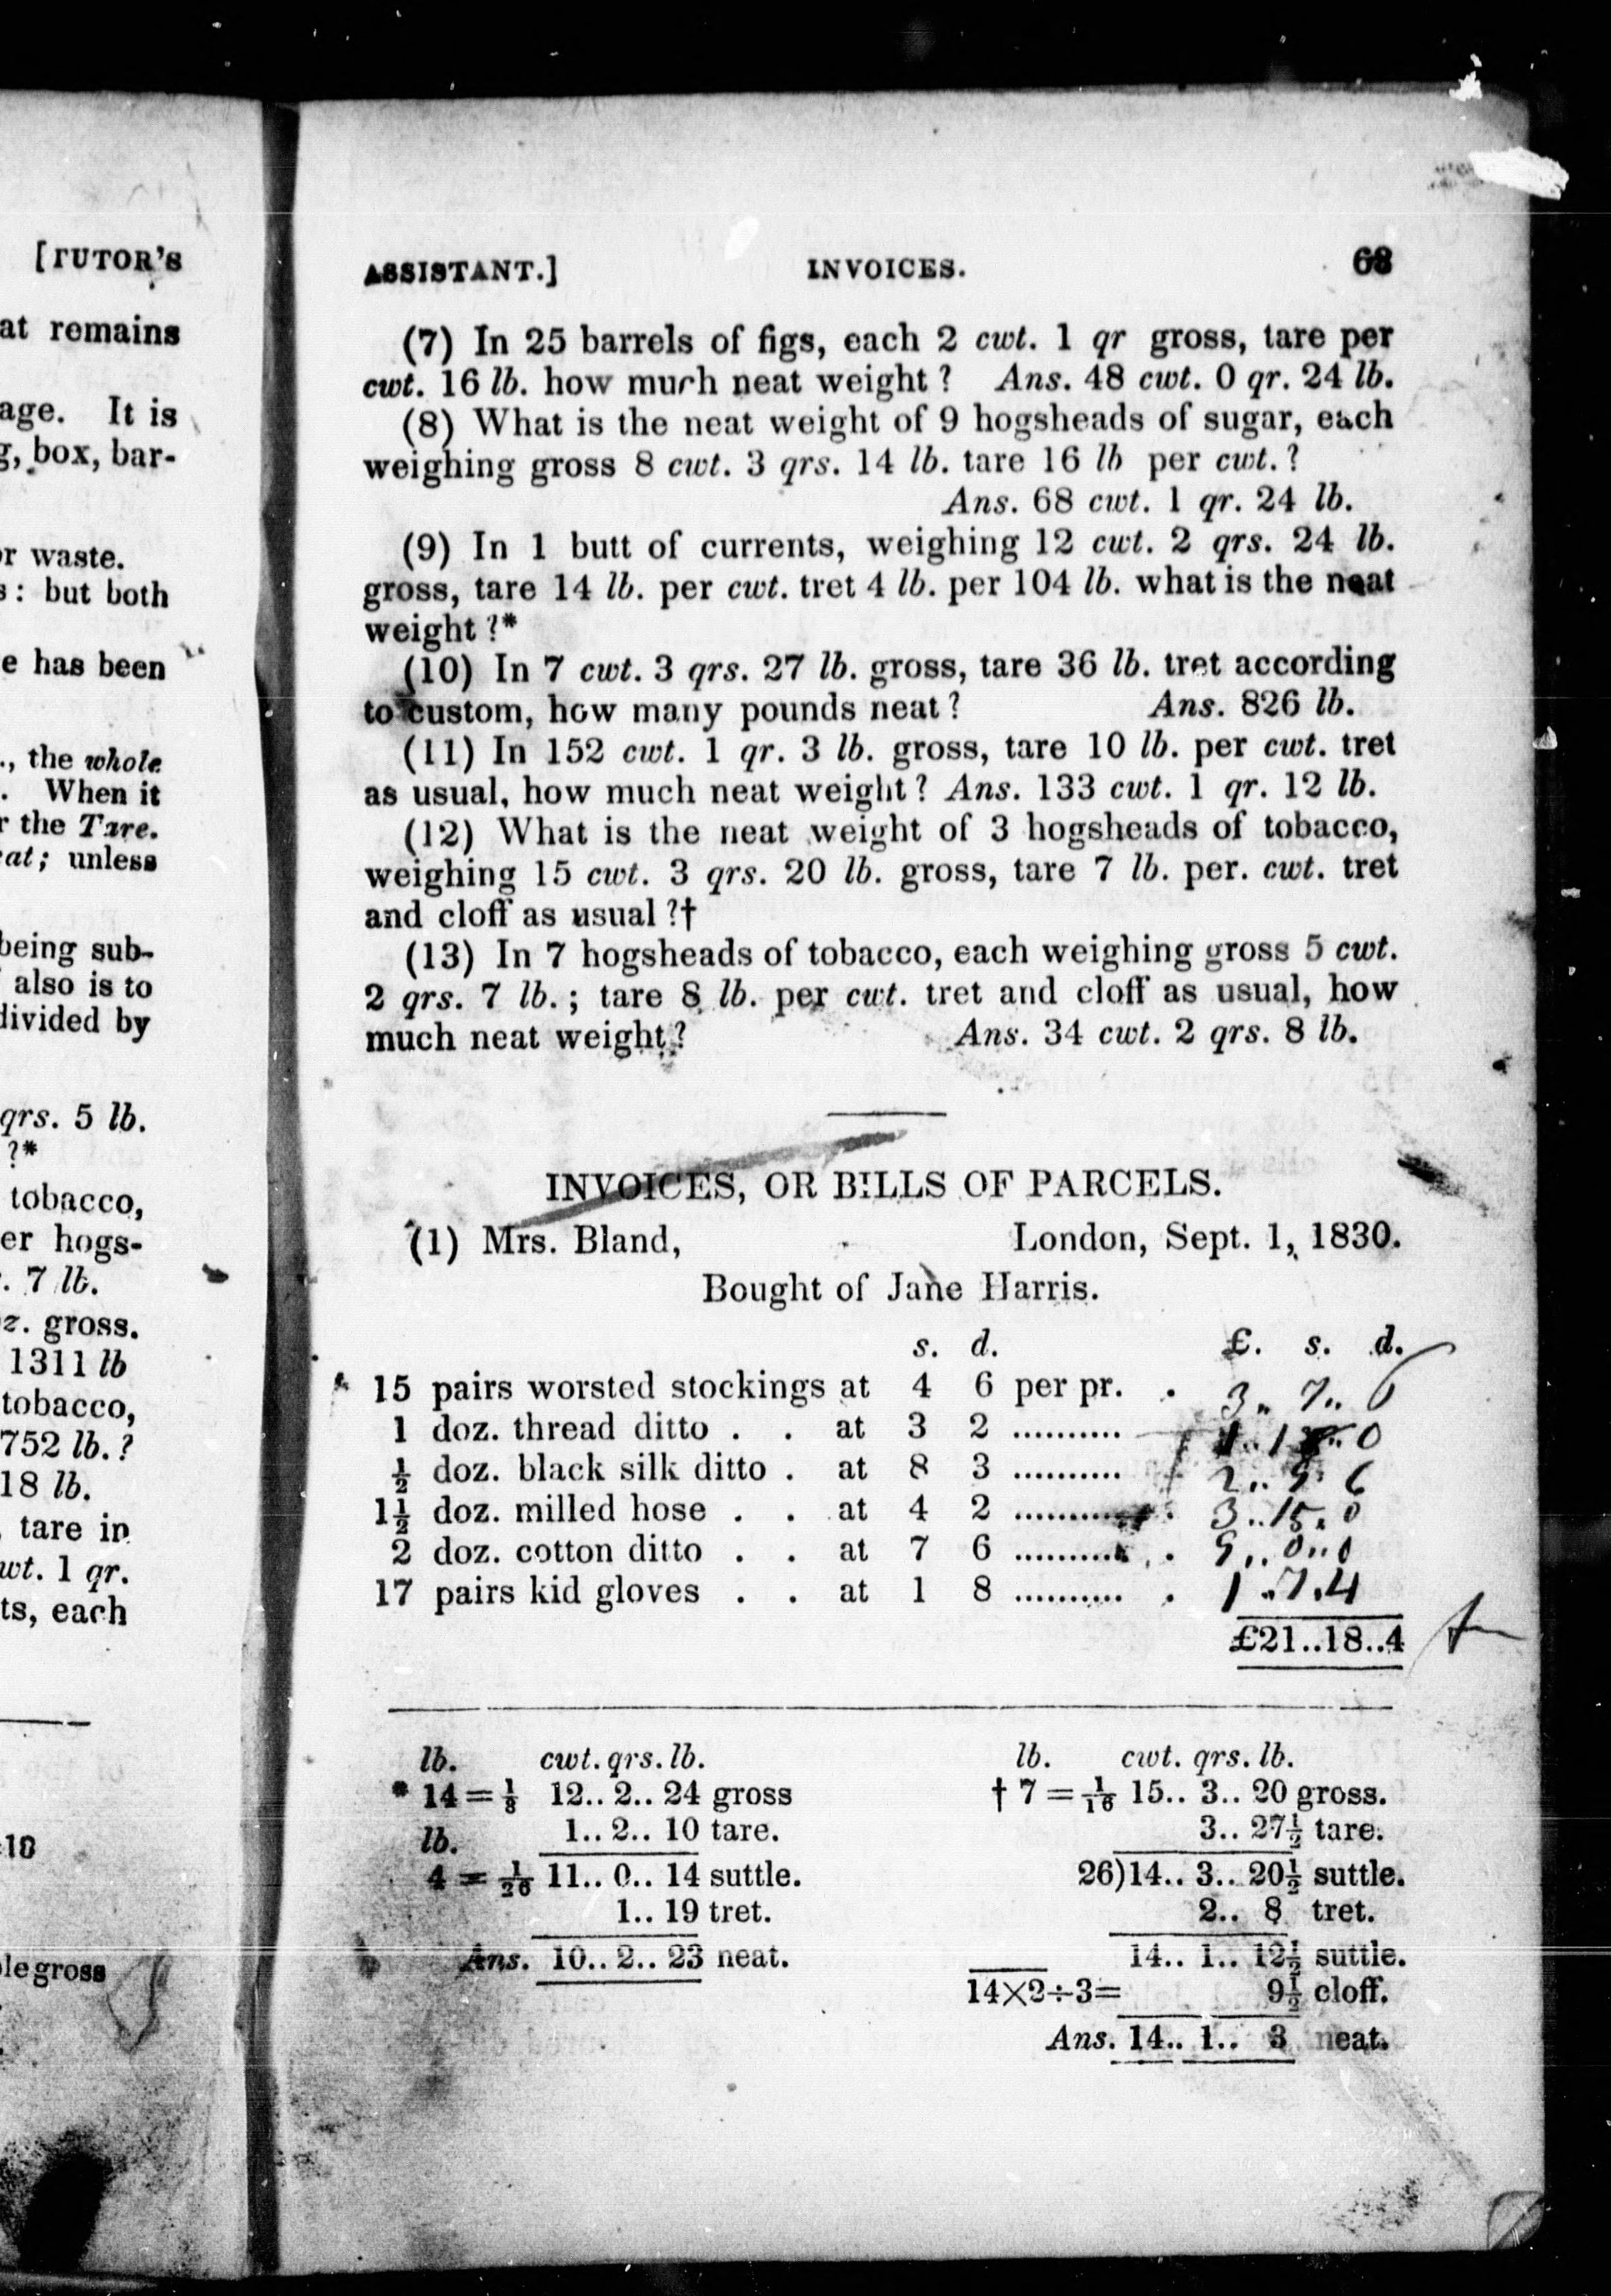 [TUTOR'S
at remains
age. It is
g, box, bar-
or waste.
s: but both
e has been
., the whole
. When it
r the Tare.
eat; unless
being sub-
also is to
divided by
qrs. 5 lb.
?*
tobacco,
er hogs-
. 7 lb.
oz. gross.
1311 lb
tobacco,
752 lb.?
18 lb.
, tare in
cwt. 1 qr.
ts, each
ole gross
ASSISTANT.] INVOICES. 63
(7) In 25 barrels of figs, each 2 cwt. 1 qr gross, tare per
cwt. 16 lb. how much neat weight? Ans. 48 cwt. 0 qr. 24 lb.
(8) What is the neat weight of 9 hogsheads of sugar, each
weighing gross 8 cwt. 3 qrs. 14 lb. tare 16 lb per cwt.?
Ans. 68 cwt. 1 qr. 24 lb.
(9) In 1 butt of currents, weighing 12 cwt. 2 qrs. 24 lb.
gross, tare 14 lb. per cwt. tret 4 lb. per 104 lb. what is the neat
weight?*
(10) In 7 cwt. 3 qrs. 27 lb. gross, tare 36 lb. tret according
to custom, how many pounds neat? Ans. 826 lb.
(11) In 152 cwt. 1 qr. 3 lb. gross, tare 10 lb. per cwt. tret
as usual, how much neat weight? Ans. 133 cwt. 1 qr. 12 lb.
(12) What is the neat weight of 3 hogsheads of tobacco,
weighing 15 cwt. 3 qrs. 20 lb. gross, tare 7 lb. per. cwt. tret
and cloff as usual?†
(13) In 7 hogsheads of tobacco, each weighing gross 5 cwt.
2 qrs. 7 lb.; tare 8 lb. per cwt. tret and cloff as usual, how
much neat weight? Ans. 34 cwt. 2 qrs. 8 lb.
INVOICES, OR BILLS OF PARCELS.
(1) Mrs. Bland, London, Sept. 1, 1830.
Bought of Jane Harris.
s. d. £. s. d.
15 pairs worsted stockings at 4 6 per pr. . 3.. 7.. 6
1 doz. thread ditto . . at 3 2 ..........
½ doz. black silk ditto . at 8 3 .......... 2.. 9. 6
1½ doz. milled hose . . at 4 2 .......... 3..15.0
2 doz. cotton ditto . . at 7 6 .......... . 9..0..0
17 pairs kid gloves . . at 1 8 .......... . 1.7.4
£21..18..4
lb. cwt. qrs. lb.
* 14=⅛ 12.. 2.. 24 gross
1.. 2.. 10 tare.
lb.
4 = 1/26 11.. 0.. 14 suttle.
1.. 19 tret.
Ans. 10.. 2.. 23 neat.
lb. cwt. qrs. lb.
† 7=1/16 15.. 3.. 20 gross.
3.. 27½ tare.
26)14.. 3.. 20½ suttle.
2.. 8 tret.
14.. 1.. 12½ suttle.
14×2÷3= 9½ cloff.
Ans. 14.. 1.. 3 neat.